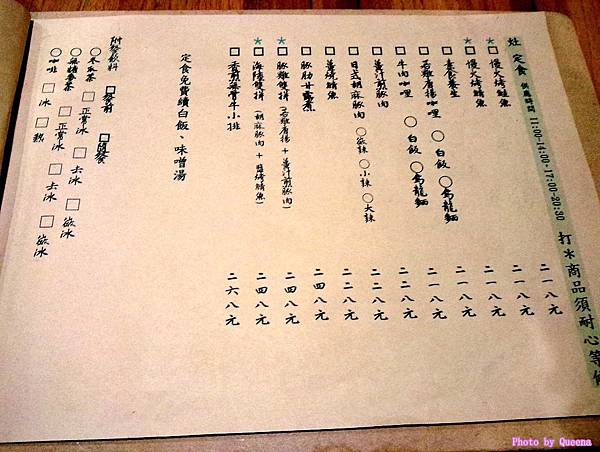 灶 定食 供應時間 11:00-14:00、17:00-20:30 打*商品須耐心等候
*□慢火烤鮭魚 二一八元
*□慢火烤鯖魚 二一八元
□素食養生 二一八元
□若雞唐揚咖哩 ○白飯 ○烏龍麵 二一八元
□牛肉咖哩 ○白飯 ○烏龍麵 二一八元
□薑汁煎豚肉 二二八元
□日式胡麻豚肉 ○微辣 ○小辣 ○大辣 二二八元
□薑燒鯖魚 二二八元
□豚肋甘露煮 二四八元
*□豚雞雙拼(若雞唐揚+薑汁煎豚肉) 二四八元
*□海陸雙拼(胡麻豚肉+鹽烤鯖魚) 二四八元
□香煎無骨牛小排 二六八元
定食免費續白飯、味噌湯
附餐飲料 □餐前 □隨餐
○冬瓜茶 □正常冰 □去冰 □微冰
○無糖麥茶 □正常冰 □去冰 □微冰
○咖啡 □冰 □熱
Photo by Queena